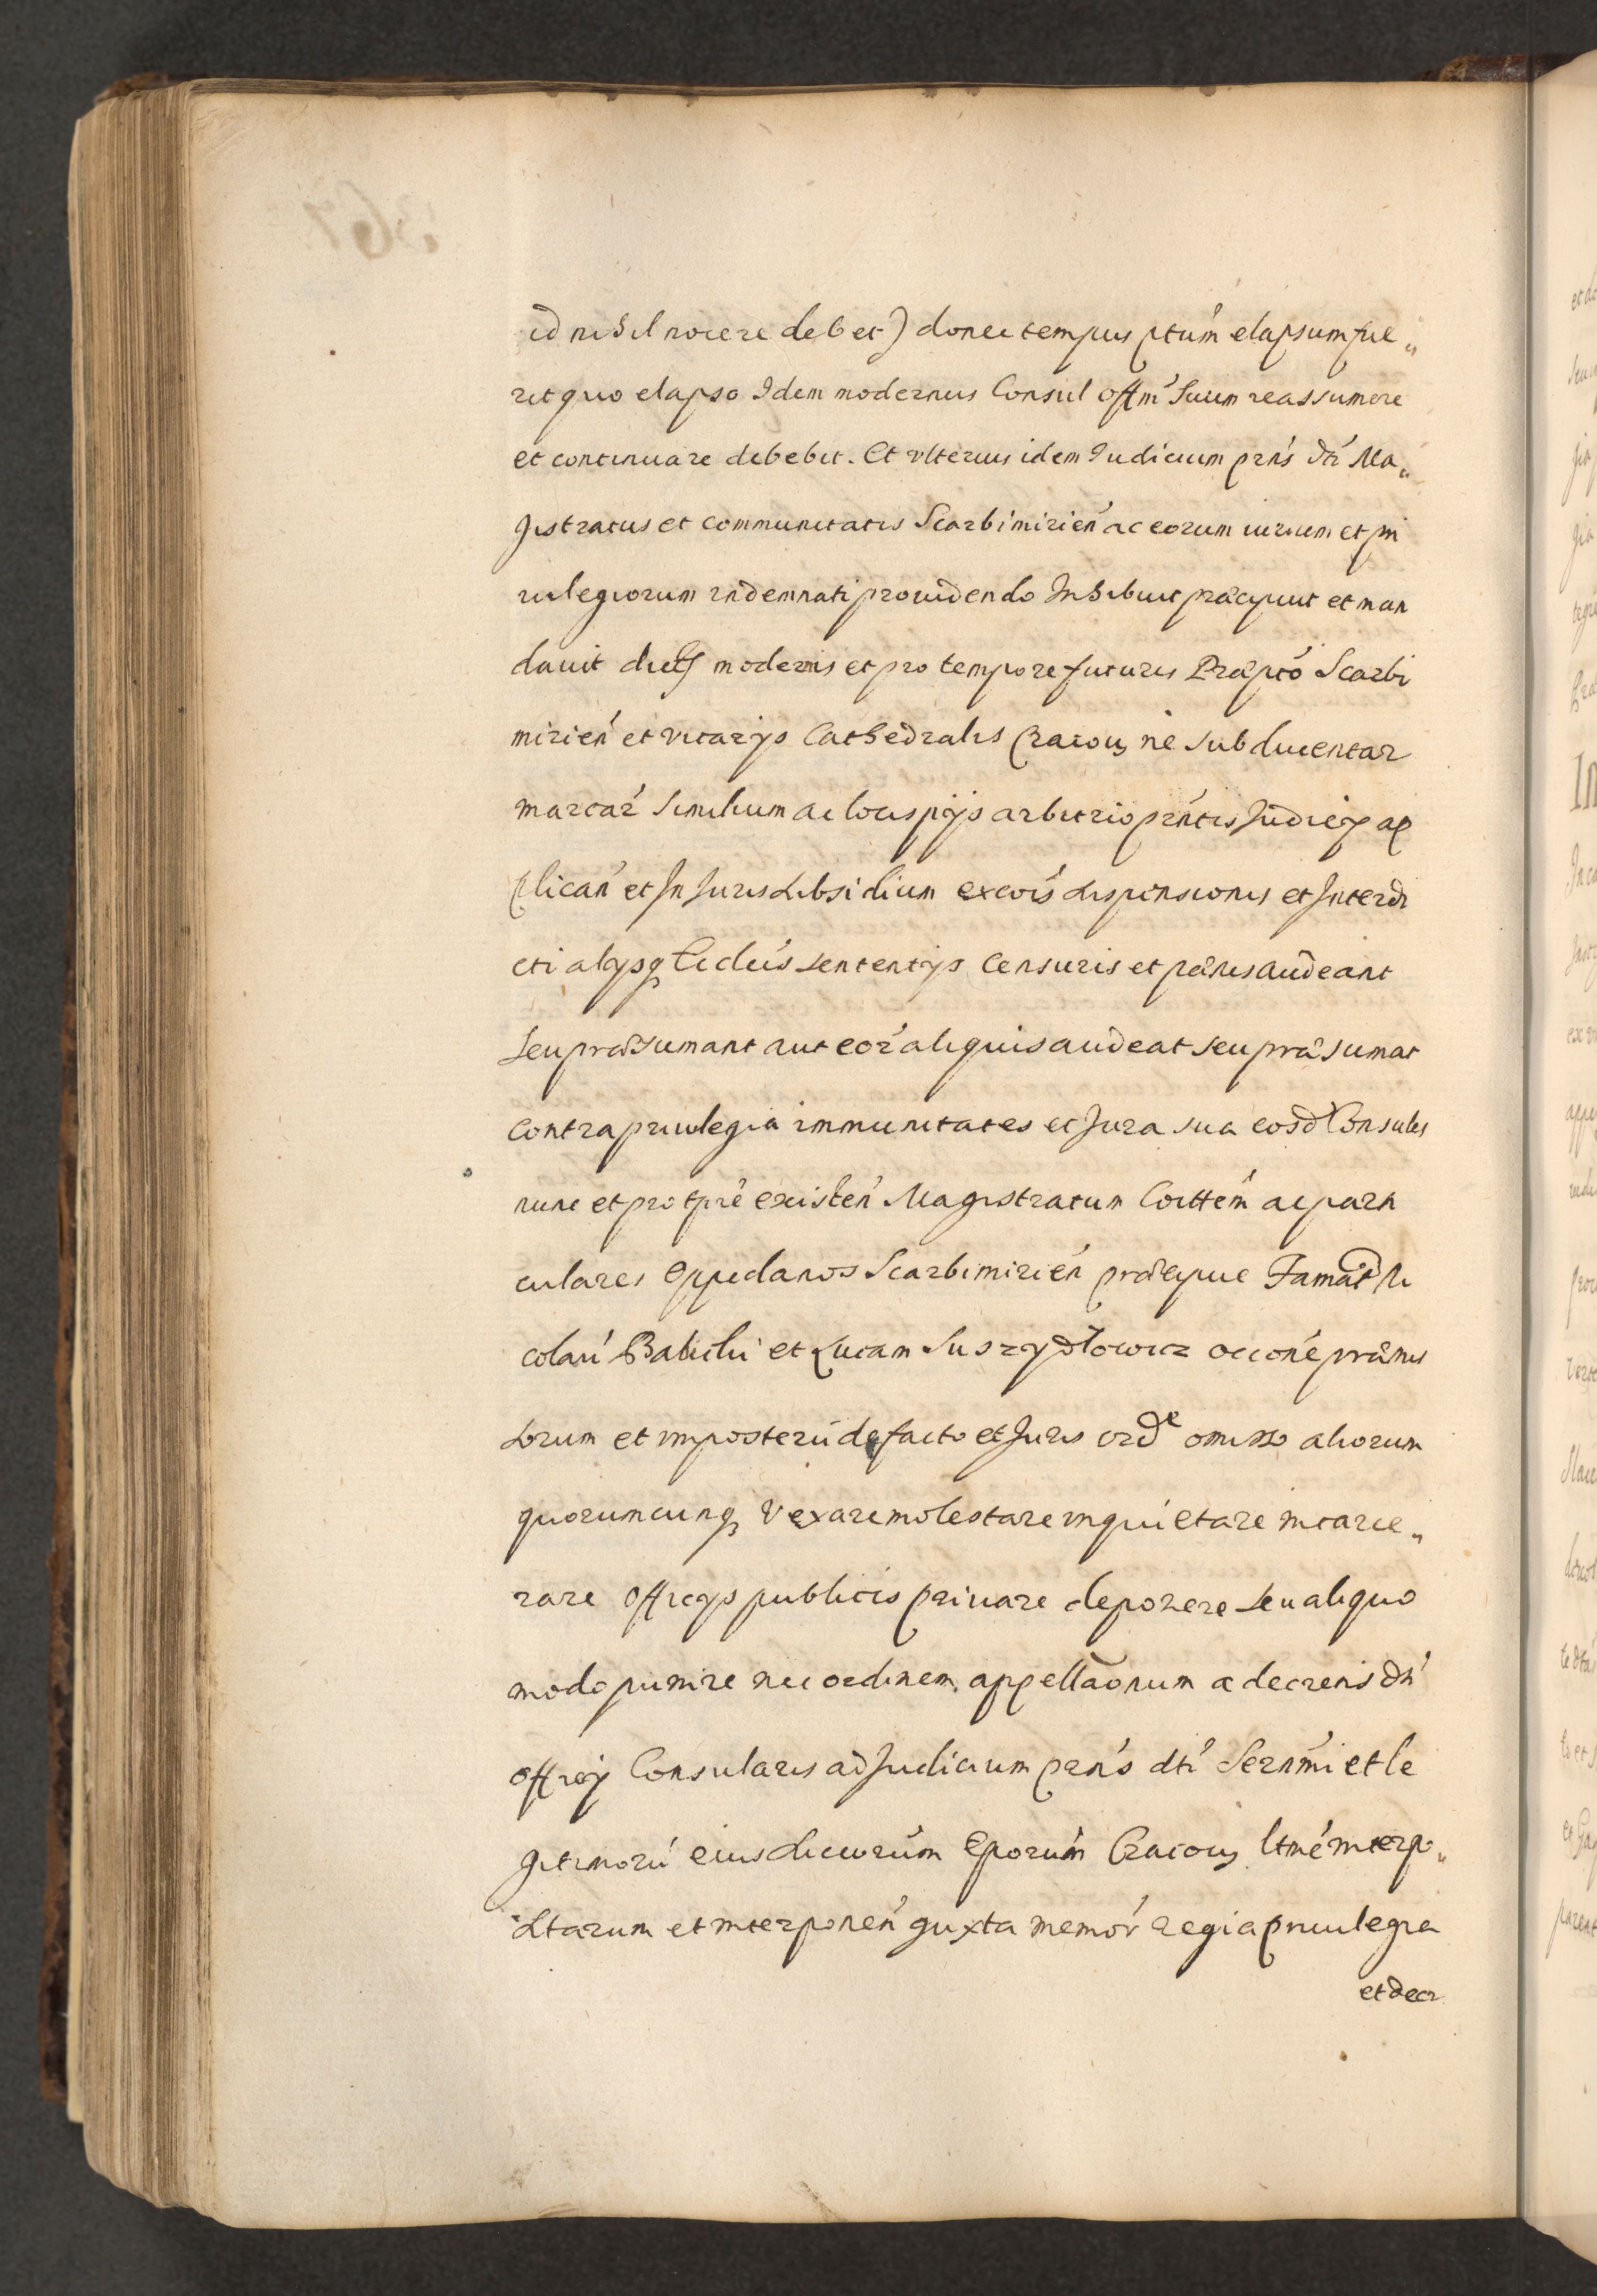 id nihil nocere debet) donec tempus ptum̃ elapsum fue„
rit quo elapso Idem modernus Consul Offm̃ Suum reassumere
et continuare debebit. Et vlterius idem Iudicium prñs dti Ma„
gistratus et communitatis Scarbimirień ac eorum iurium et pri
uilegiorum indemnati prouidendo Inhibuit præcipuit et man
dauit dictis modernis et pro tempore futuris Præpto Scarbi
mirień et vicarijs Cathedralis Cracou ne sub ducentar
marcar̃ similium ac locis pijs arbitrio prńtis Iudicij ap
plicań et In Iuris subsidium excois suspensionis et Interdi
cti alijsq Eccleis sententijs Censuris et pænis audeant
seu præsumant aut eor̃ aliquis audeat seu præsumat
contra priuilegia immunitates et Jura sua eosd Consules
nunc et pro tpre existeń Magistratum Coittem̃ ac parti
culares Oppidanos Scarbimirień præcipue Famat Ni
colaũ Babicki et Lucam Suszydłowicz occone præmis
sorum et imposterũ de facto et Juris ord^e omisso aliorum
quorumcunq vexare molestare inquietare incarce„
rare officijs publicis priuare deponere seu aliquo
modo punire nec ordinem appellaonum a decretis dti
officij Consularis ad Judicium prñs dti Sernmi et le
gitimorũ eius succorum̃ Eporum̃ Cracou ltme interpo„
sitarum et interponeń juxta memor̃ regia priuilegia
et decr